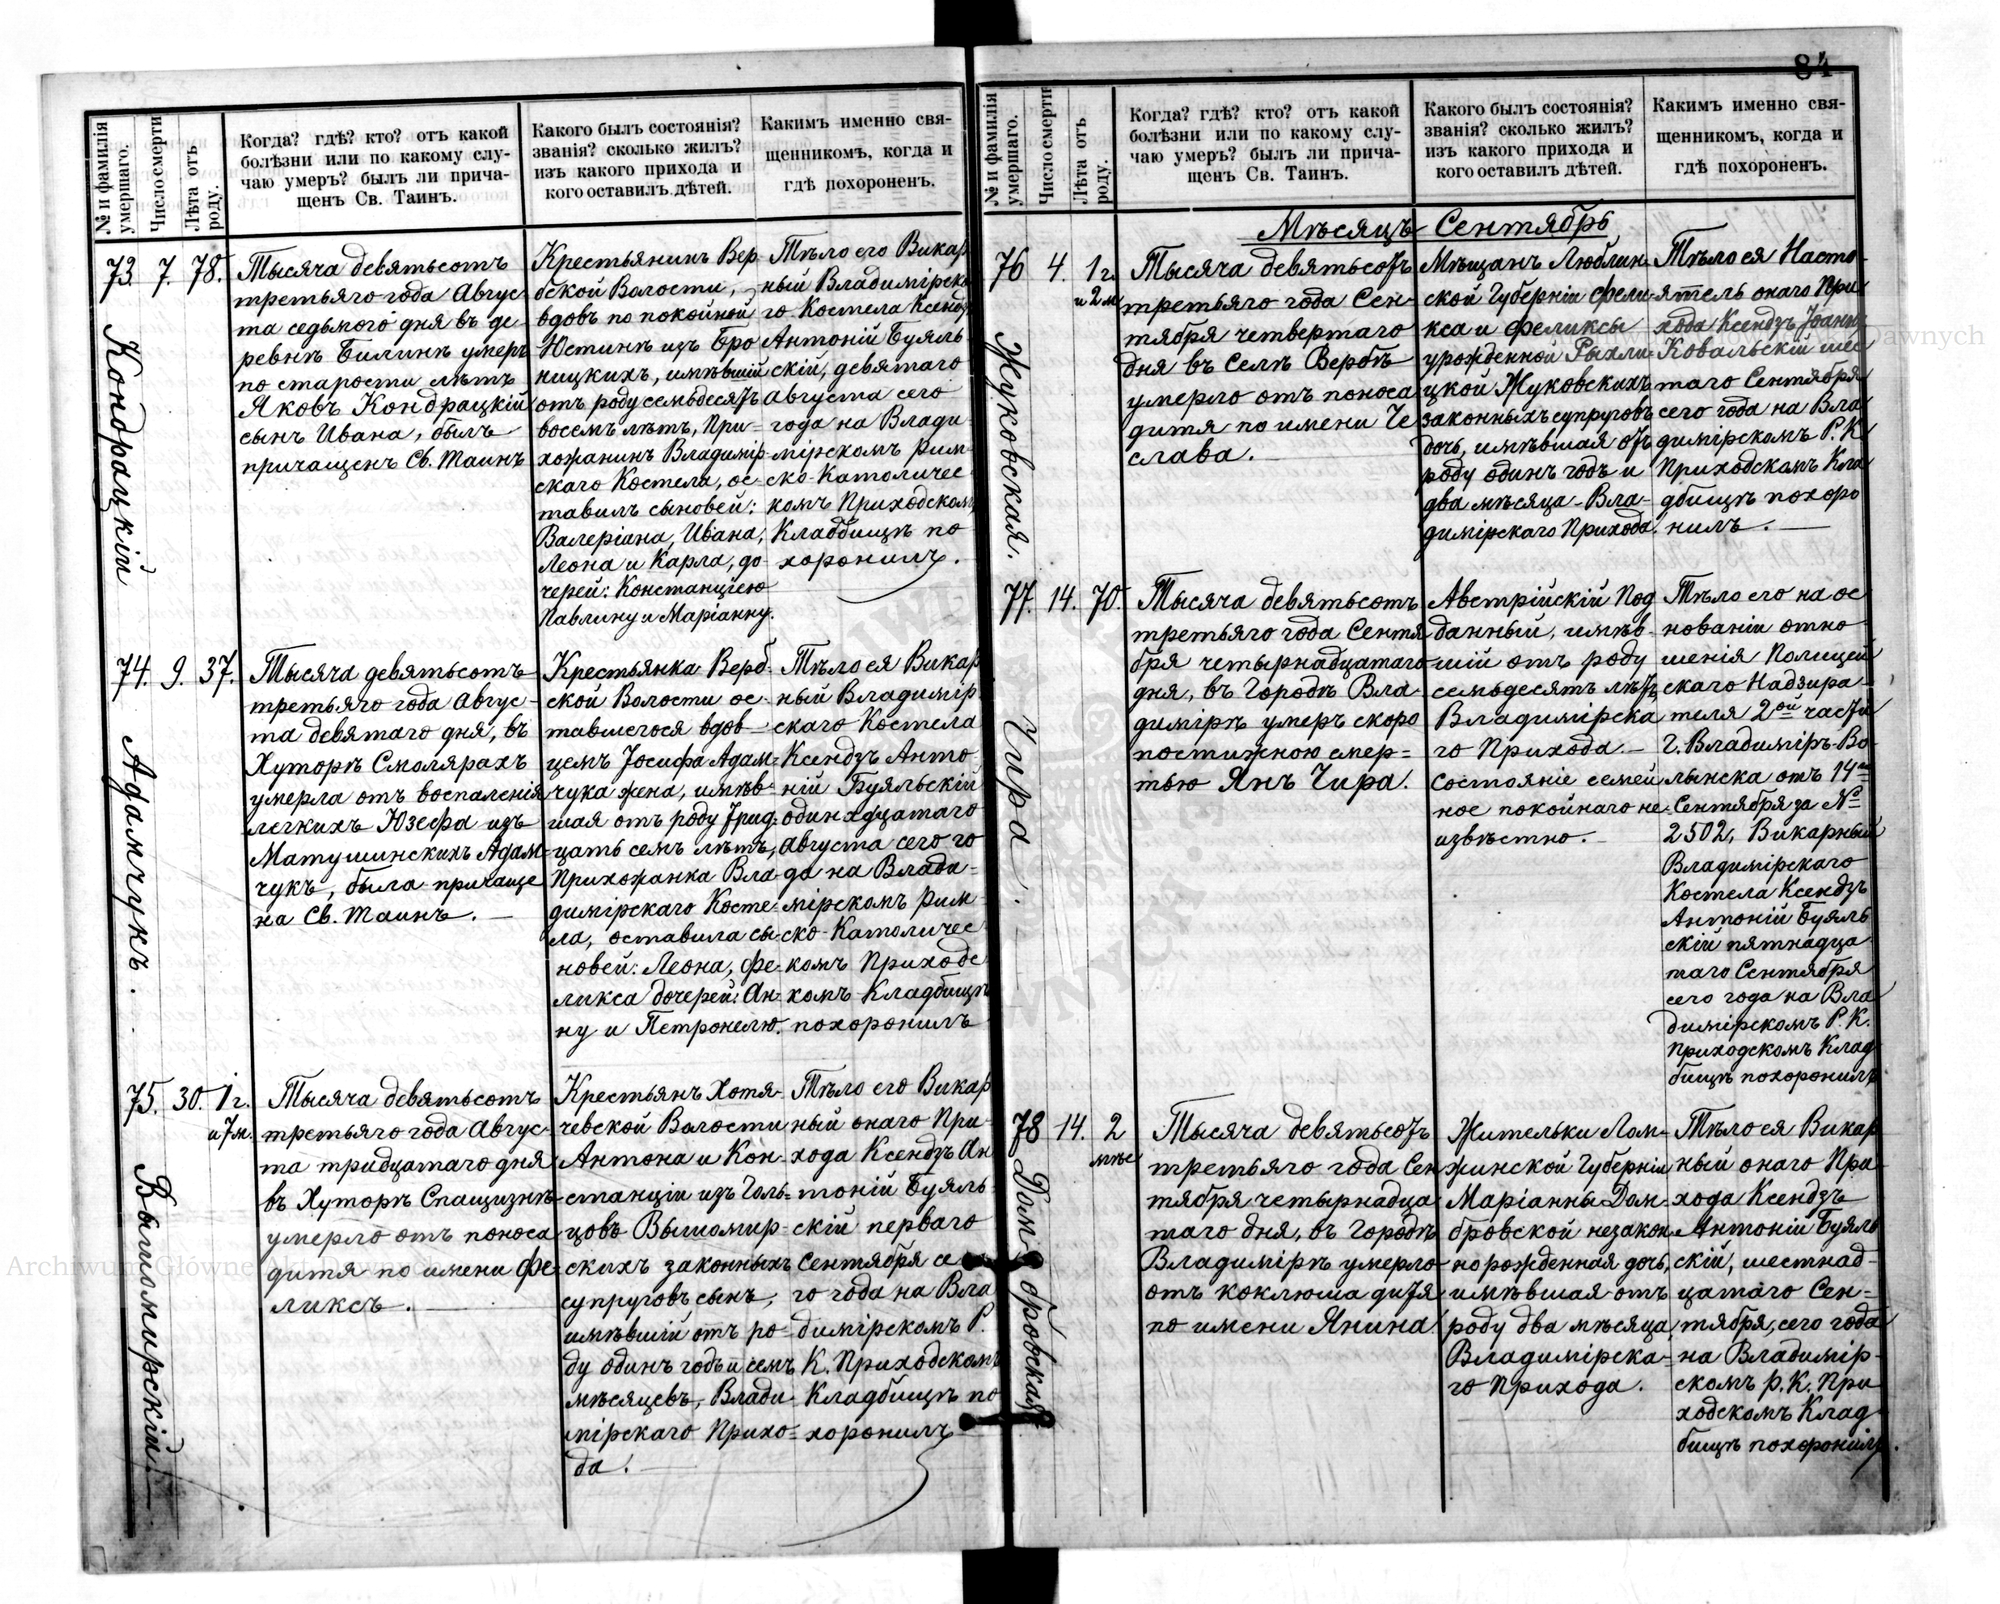 84
№ и фамилія умершаго.
Число смерти
Лѣта отъ роду.
Когда? гдѣ? кто? отъ какой
болѣзни или по какому слу-
чаю умеръ? былъ ли прича-
щенъ Св. Таинъ.
Какого былъ состоянія?
званія? сколько жилъ?
изъ какого прихода и
кого оставилъ дѣтей.
Какимъ именно свя-
щенникомъ, когда и
гдѣ похороненъ.
73. 7. 78.
Кондрацкій
Тысяча девятьсотъ
третьяго года Авгус-
та седьмого дня въ де-
ревнѣ Билинѣ умеръ
по старости лѣтъ
Яковъ Кондрацкій
сынъ Ивана, былъ
причащенъ Св. Таинъ
Крестьянинъ Вер-
бской Волости,
вдовъ по покойной
Юстинѣ изъ Бро
ницкихъ, имѣвшій
отъ роду семьдесятъ
восемъ лѣтъ, При-
хожанинъ Владимір-
скаго Костела, ос-
тавилъ сыновей:
Валеріана, Ивана,
Леона и Карла, до-
черей: Констанцію
Павлину и Маріанну.
Тѣло его Викар
ный Владимірска
го Костела Ксендзъ
Антоній Буяль
скій, девятаго
августа сего
года на Влади-
мірскомъ Рим-
ско-Католичес
комъ Приходскомъ
Кладбищѣ по
хоронилъ.
74. 9. 37.
Адамчукъ.
Тысяча девятьсотъ
третьяго года Авгус-
та девятаго дня, въ
Хуторѣ Смолярахъ
умерла отъ воспаленія
легкихъ Юзефа изъ
Матушинскихъ Адам-
чукъ, была причаще
на Св. Таинъ.
Крестьянка Верб-
ской Волости ос-
тавшегося вдов-
цемъ Іосифа Адам-
чука жена, имѣв-
шая отъ роду трид-
цать семь лѣтъ,
Прихожанка Вла-
димірскаго Косте-
ла, оставила сы-
новей: Леона, Фе-
ликса дочерей: Ан-
ну и Петронелю.
Тѣло ея Викар
ный Владимір
скаго Костела
Ксендзъ Анто
ній Буяльскій
одинадцатаго
Августа сего го
да на Влади-
мірскомъ Рим-
ско-Католичес
комъ Приходс
комъ Кладбищѣ
похоронилъ
75. 30. 1 г.
и 7 м.
Вышомирскій.
Тысяча девятьсотъ
третьяго года Авгус-
та тридцатаго дня
въ Хуторѣ Спащизнѣ
умерло отъ поноса
дитя по имени Фе-
ликсъ.
Крестьянъ Хотя-
чевской Волости
Антона и Кон-
станціи изъ Голь-
цовъ Вышомир-
скихъ законныхъ
супруговъ сынъ,
имѣвшій отъ ро-
ду одинъ годъ и семъ
мѣсяцевъ, Влади-
мірскаго Прихо-
да.
Тѣло его Викар
ный онаго При-
хода Ксендзъ Ан
тоній Буяль-
скій перваго
Сентября се
го года на Вла
димірскомъ Р.
К. Приходскомъ
Кладбищѣ по
хоронилъ
№ и фамилія умершаго.
Число смерти
Лѣта отъ роду.
Когда? гдѣ? кто? отъ какой
болѣзни или по какому слу-
чаю умеръ? былъ ли прича-
щенъ Св. Таинъ.
Какого былъ состоянія?
званія? сколько жилъ?
изъ какого прихода и
кого оставилъ дѣтей.
Какимъ именно свя-
щенникомъ, когда и
гдѣ похороненъ.
Мѣсяцъ Сентябрь
76 4. 1 г.
и 2 м.
Жуковская.
Тысяча девятьсотъ
третьяго года Сен-
тября четвертаго
дня въ Селѣ Вербѣ
умерло отъ поноса
дитя по имени Че
слава.
Мѣщанъ Люблин-
ской Губерніи Фели-
кса и Феликсы
урожденной Рыхли-
цкой Жуковскихъ
законныхъ супруговъ
дочь, имѣвшая отъ
роду одинъ годъ и
два мѣсяца Вла-
димірскаго Прихода.
Тѣло ея Насто-
ятель онаго При
хода Ксендзъ Іоаннъ
Ковальскій шес
таго Сентября
сего года на Вла
димірскомъ Р. К.
Приходскомъ Кла
дбищѣ похоро
нилъ.
77. 14. 70.
Чира.
Тысяча девятьсотъ
третьяго года Сентя
бря четырнадцатаго
дня, въ Городѣ Вла
димірѣ умеръ скоро
постижною смер-
тью Янъ Чира.
Австрійскій Под
данный, имѣв-
шій отъ роду
семьдесятъ лѣтъ
Владимірска
го Прихода.
Состояніе семей
ное покойнаго не
извѣстно.
Тѣло его на ос
нованіи отно
шенія Полицей
скаго Надзира-
теля 2ой части
г. Владиміръ-Во-
лынска отъ 14го
Сентября за №
2502, Викарный
Владимірскаго
Костела Ксендзъ
Антоній Буяль
скій пятнадца
таго Сентября
сего года на Вла
димірскомъ Р. К.
Приходскомъ Клад
бищѣ похоронилъ
78 14. 2
мѣс
Домбровская
Тысяча девятьсотъ
третьяго года Сен
тября четырнадца
таго дня, въ Городѣ
Владимірѣ умерло
отъ коклюша дитя
по имени Янина
Жительки Лом-
жинской Губерніи
Маріанны Дом-
бровской незакон
норожденная дочь,
имѣвшая отъ
роду два мѣсяца,
Владимірска-
го Прихода.
Тѣло ея Викар
ный онаго При
хода Ксендзъ
Антоній Буяль
скій, шестнад-
цатаго Сен-
тября, сего года
на Владимір-
скомъ Р. К. При
ходскомъ Клад-
бищѣ похоронилъ.